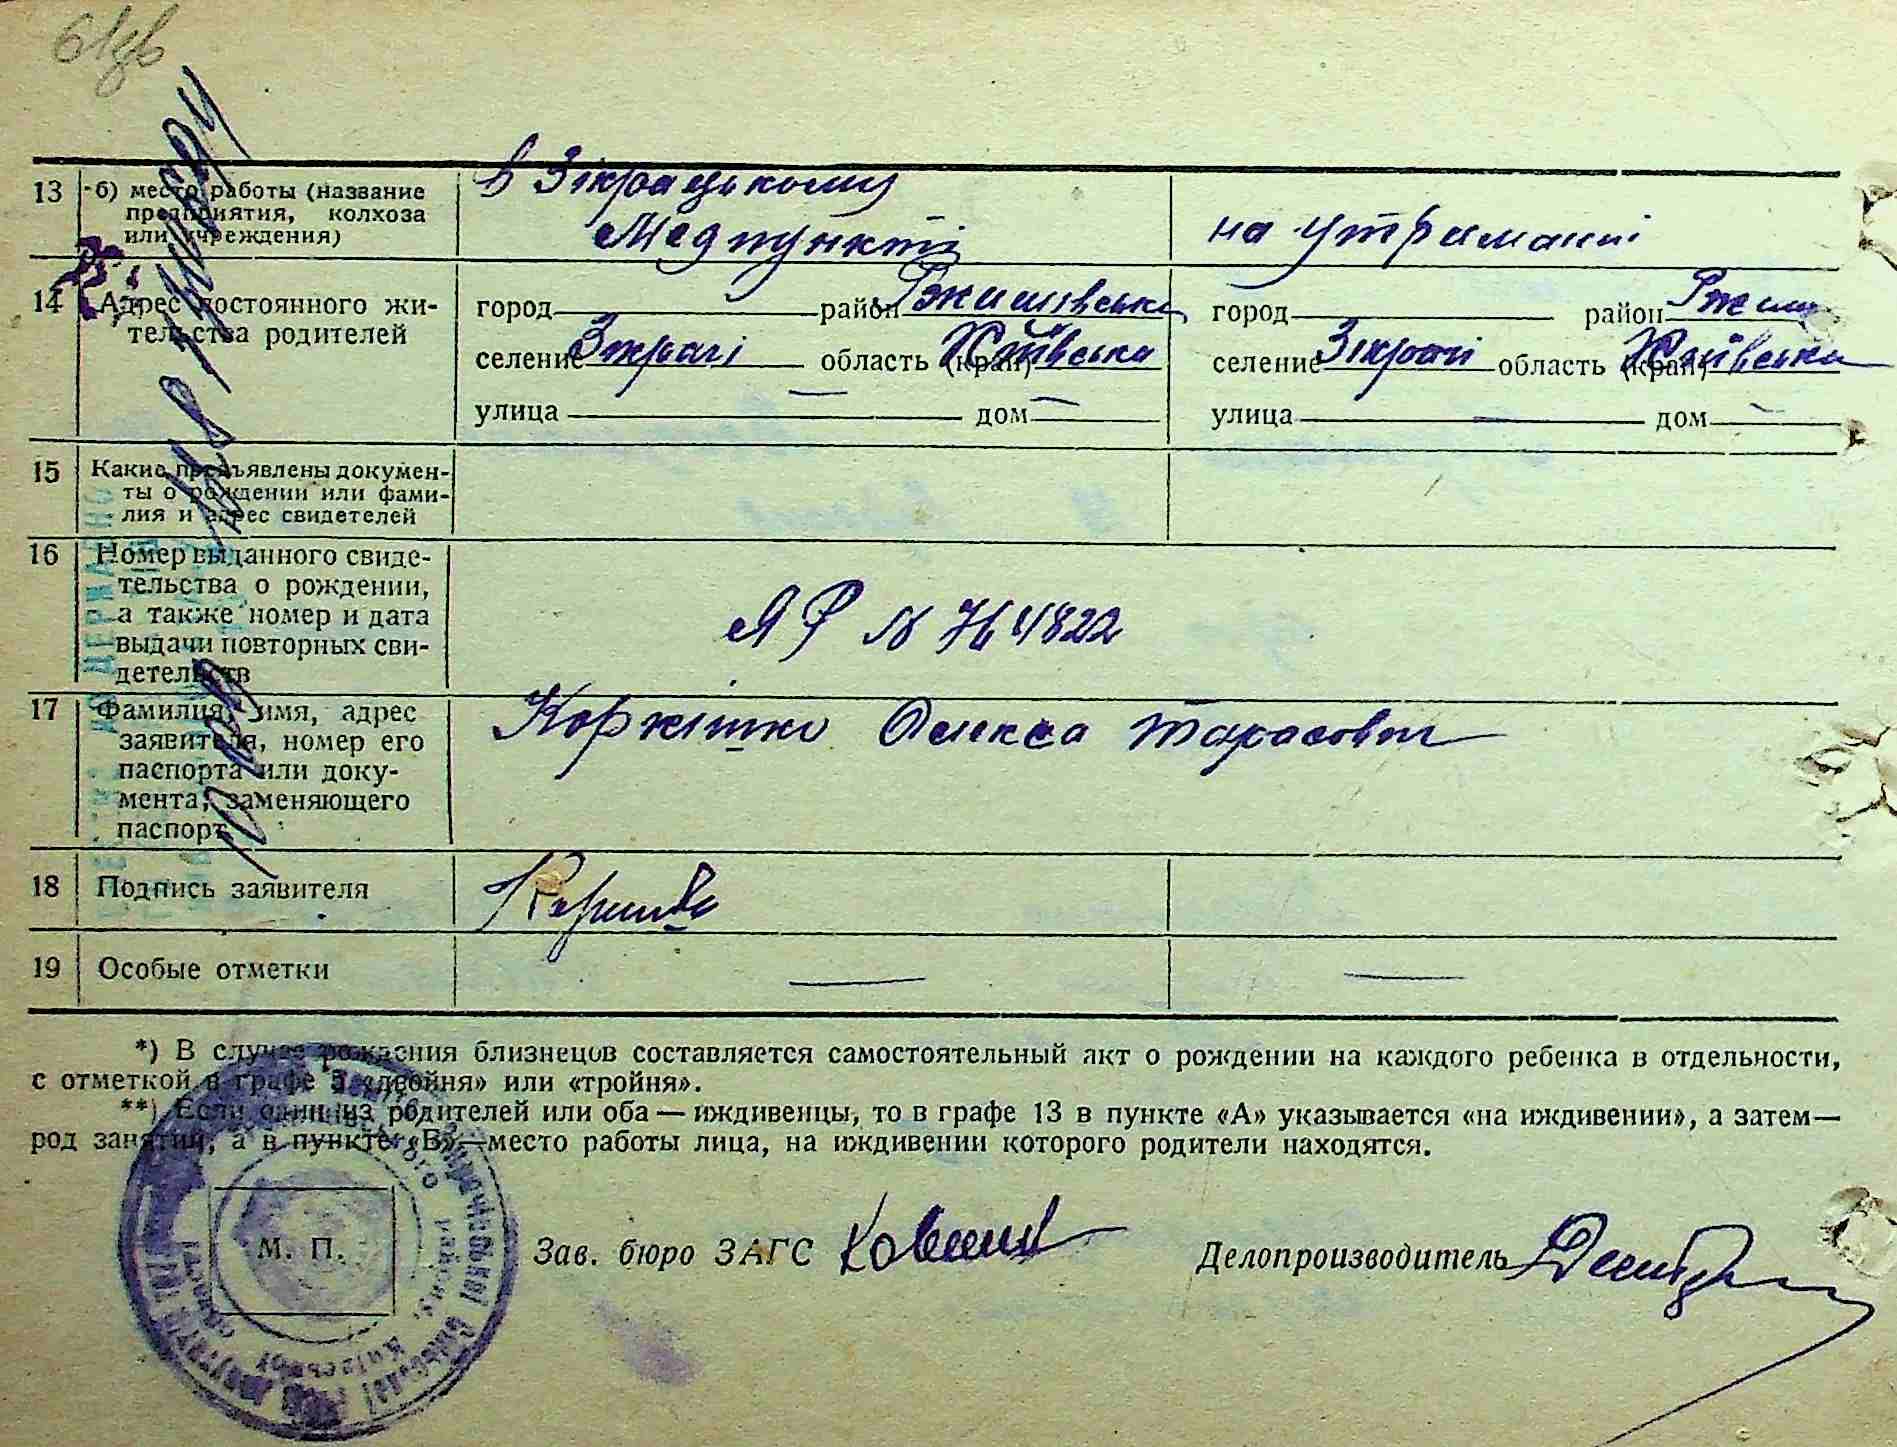 13 б) место работы (название
предприятия, колхоза
или учреждения)
в Зікрацькому
Медпункті
на утриманні
14 Адрес постоянного жи-
тельства родителей
город район Ржищівськ
селение Зікрачі область (край) Київська
улица — дом —
город район Ржищ
селение Зікрачі область (край) Київська
улица — дом —
15 Какие предъявлены докумен-
ты о рождении или фами-
лия и адрес свидетелей
16 Номер выданного свиде-
тельства о рождении,
а также номер и дата
выдачи повторных сви-
детельств
ЯР № 764822
17 Фамилия, имя, адрес
заявителя, номер его
паспорта или доку-
мента, заменяющего
паспорт
Олекса Тарасович
18 Подпись заявителя
19 Особые отметки — —
*) В случае рождения близнецов составляется самостоятельный акт о рождении на каждого ребенка в отдельности,
с отметкой в графе 5 «двойня» или «тройня».
**) Если один из родителей или оба — иждивенцы, то в графе 13 в пункте «А» указывается «на иждивении», а затем—
род занятий, а в пункте «В»—место работы лица, на иждивении которого родители находятся.
М. П.
Зав. бюро ЗАГС
Делопроизводитель